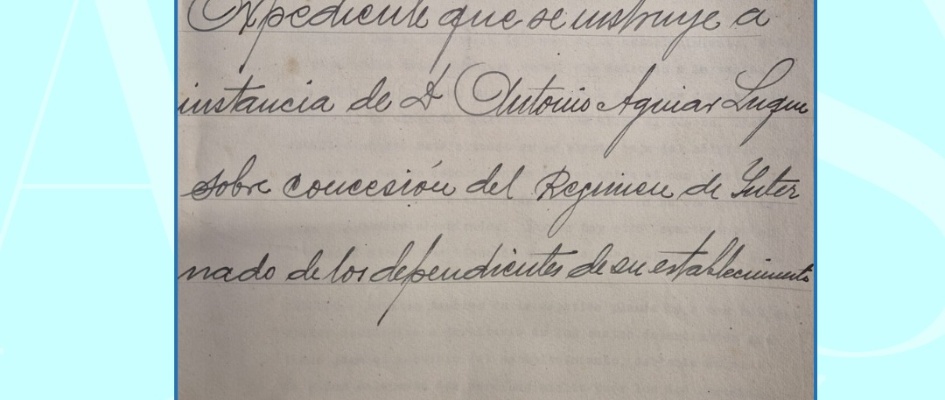 Expediente que se instruye a
instancia de D Antonio Aguiar Luque
sobre concesión del Regimen de Inter
nado de los dependientes de su establecimiento